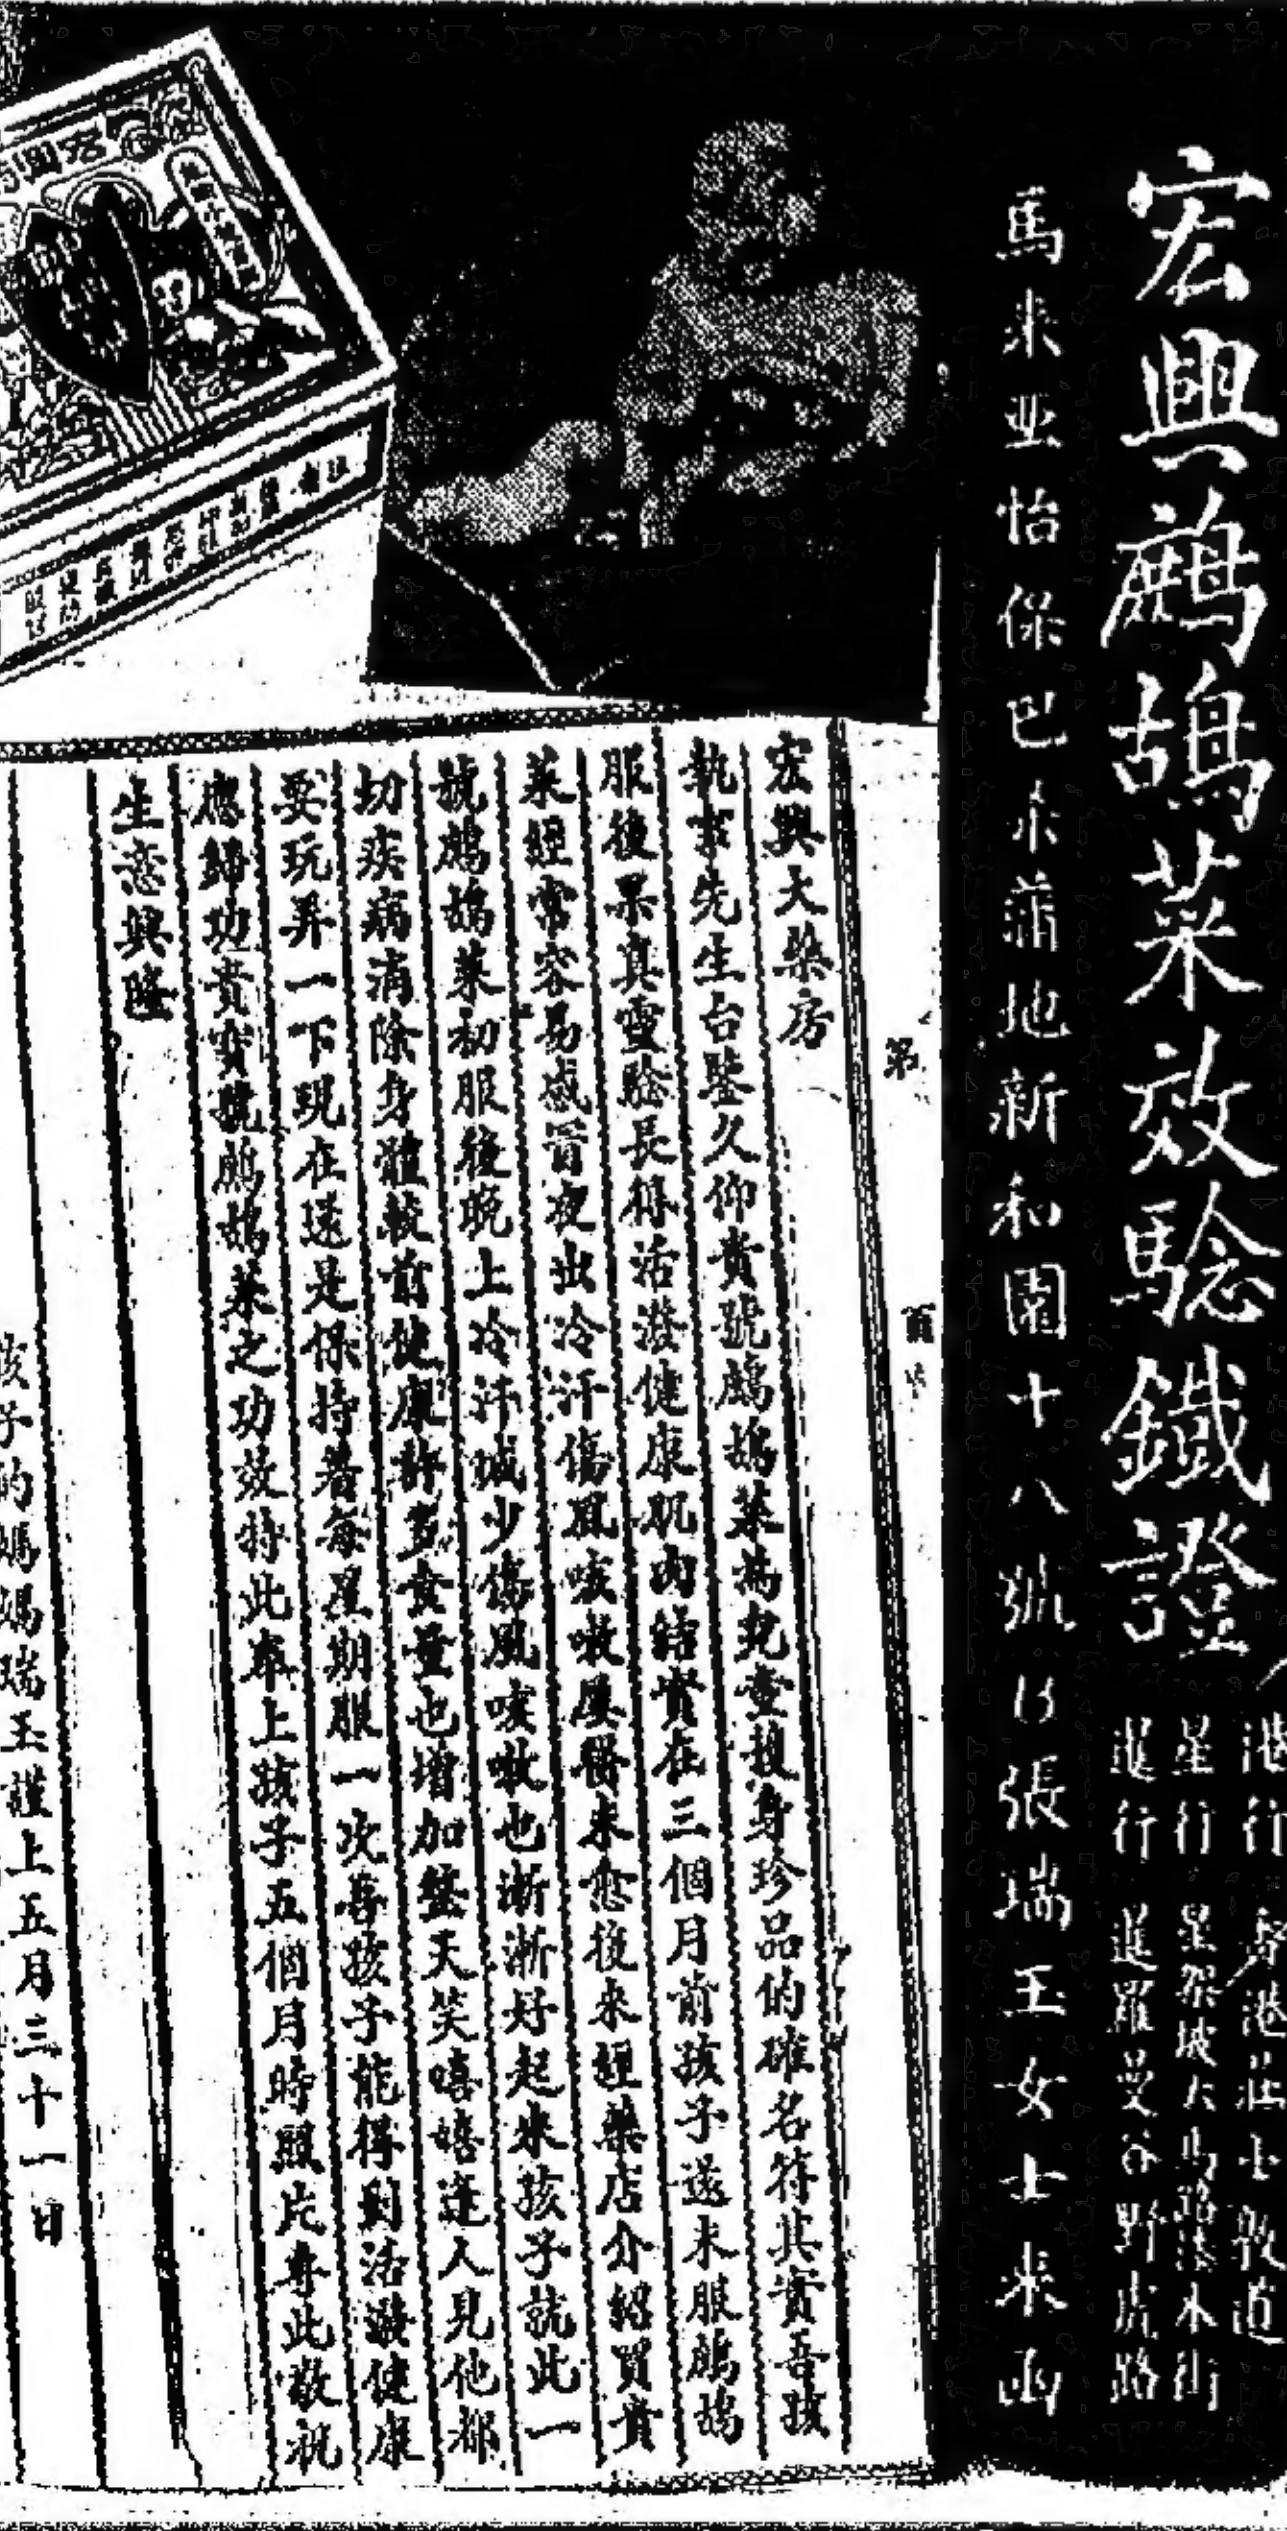 宏興鷓鴣菜效驗鐵證
港行 香港莊士敦道
星行 星架坡大馬路漆木街
暹行 暹羅曼谷野虎路
馬来亚怡保巴占蒲地新和園十八號13張瑞玉女士来函
宏興大藥房
執事先生台鑒久仰貴號鷓鴣菜為兒童護身珍品的確名符其實吾孩
服後果真靈驗長得活潑健康肌肉結實在三個月前孩子還未服鷓鴣
菜經常容易感冒夜出冷汗傷風咳嗽屢醫未愈後來經藥店介紹買貴
號鷓鴣菜初服後晚上冷汗減少傷風咳嗽也漸漸好起來孩子就此一
切疾病消除身體較前健康許多食量也增加整天笑嘻嘻逢人見他都
要玩弄一下現在還是保持着每星期服一次吾孩子能得到活潑健康
應歸功貴寶號鷓鴣菜之功效特此奉上孩子五個月時照片專此敬祝
生意興隆
孩子的媽媽瑞玉謹上五月三十一日